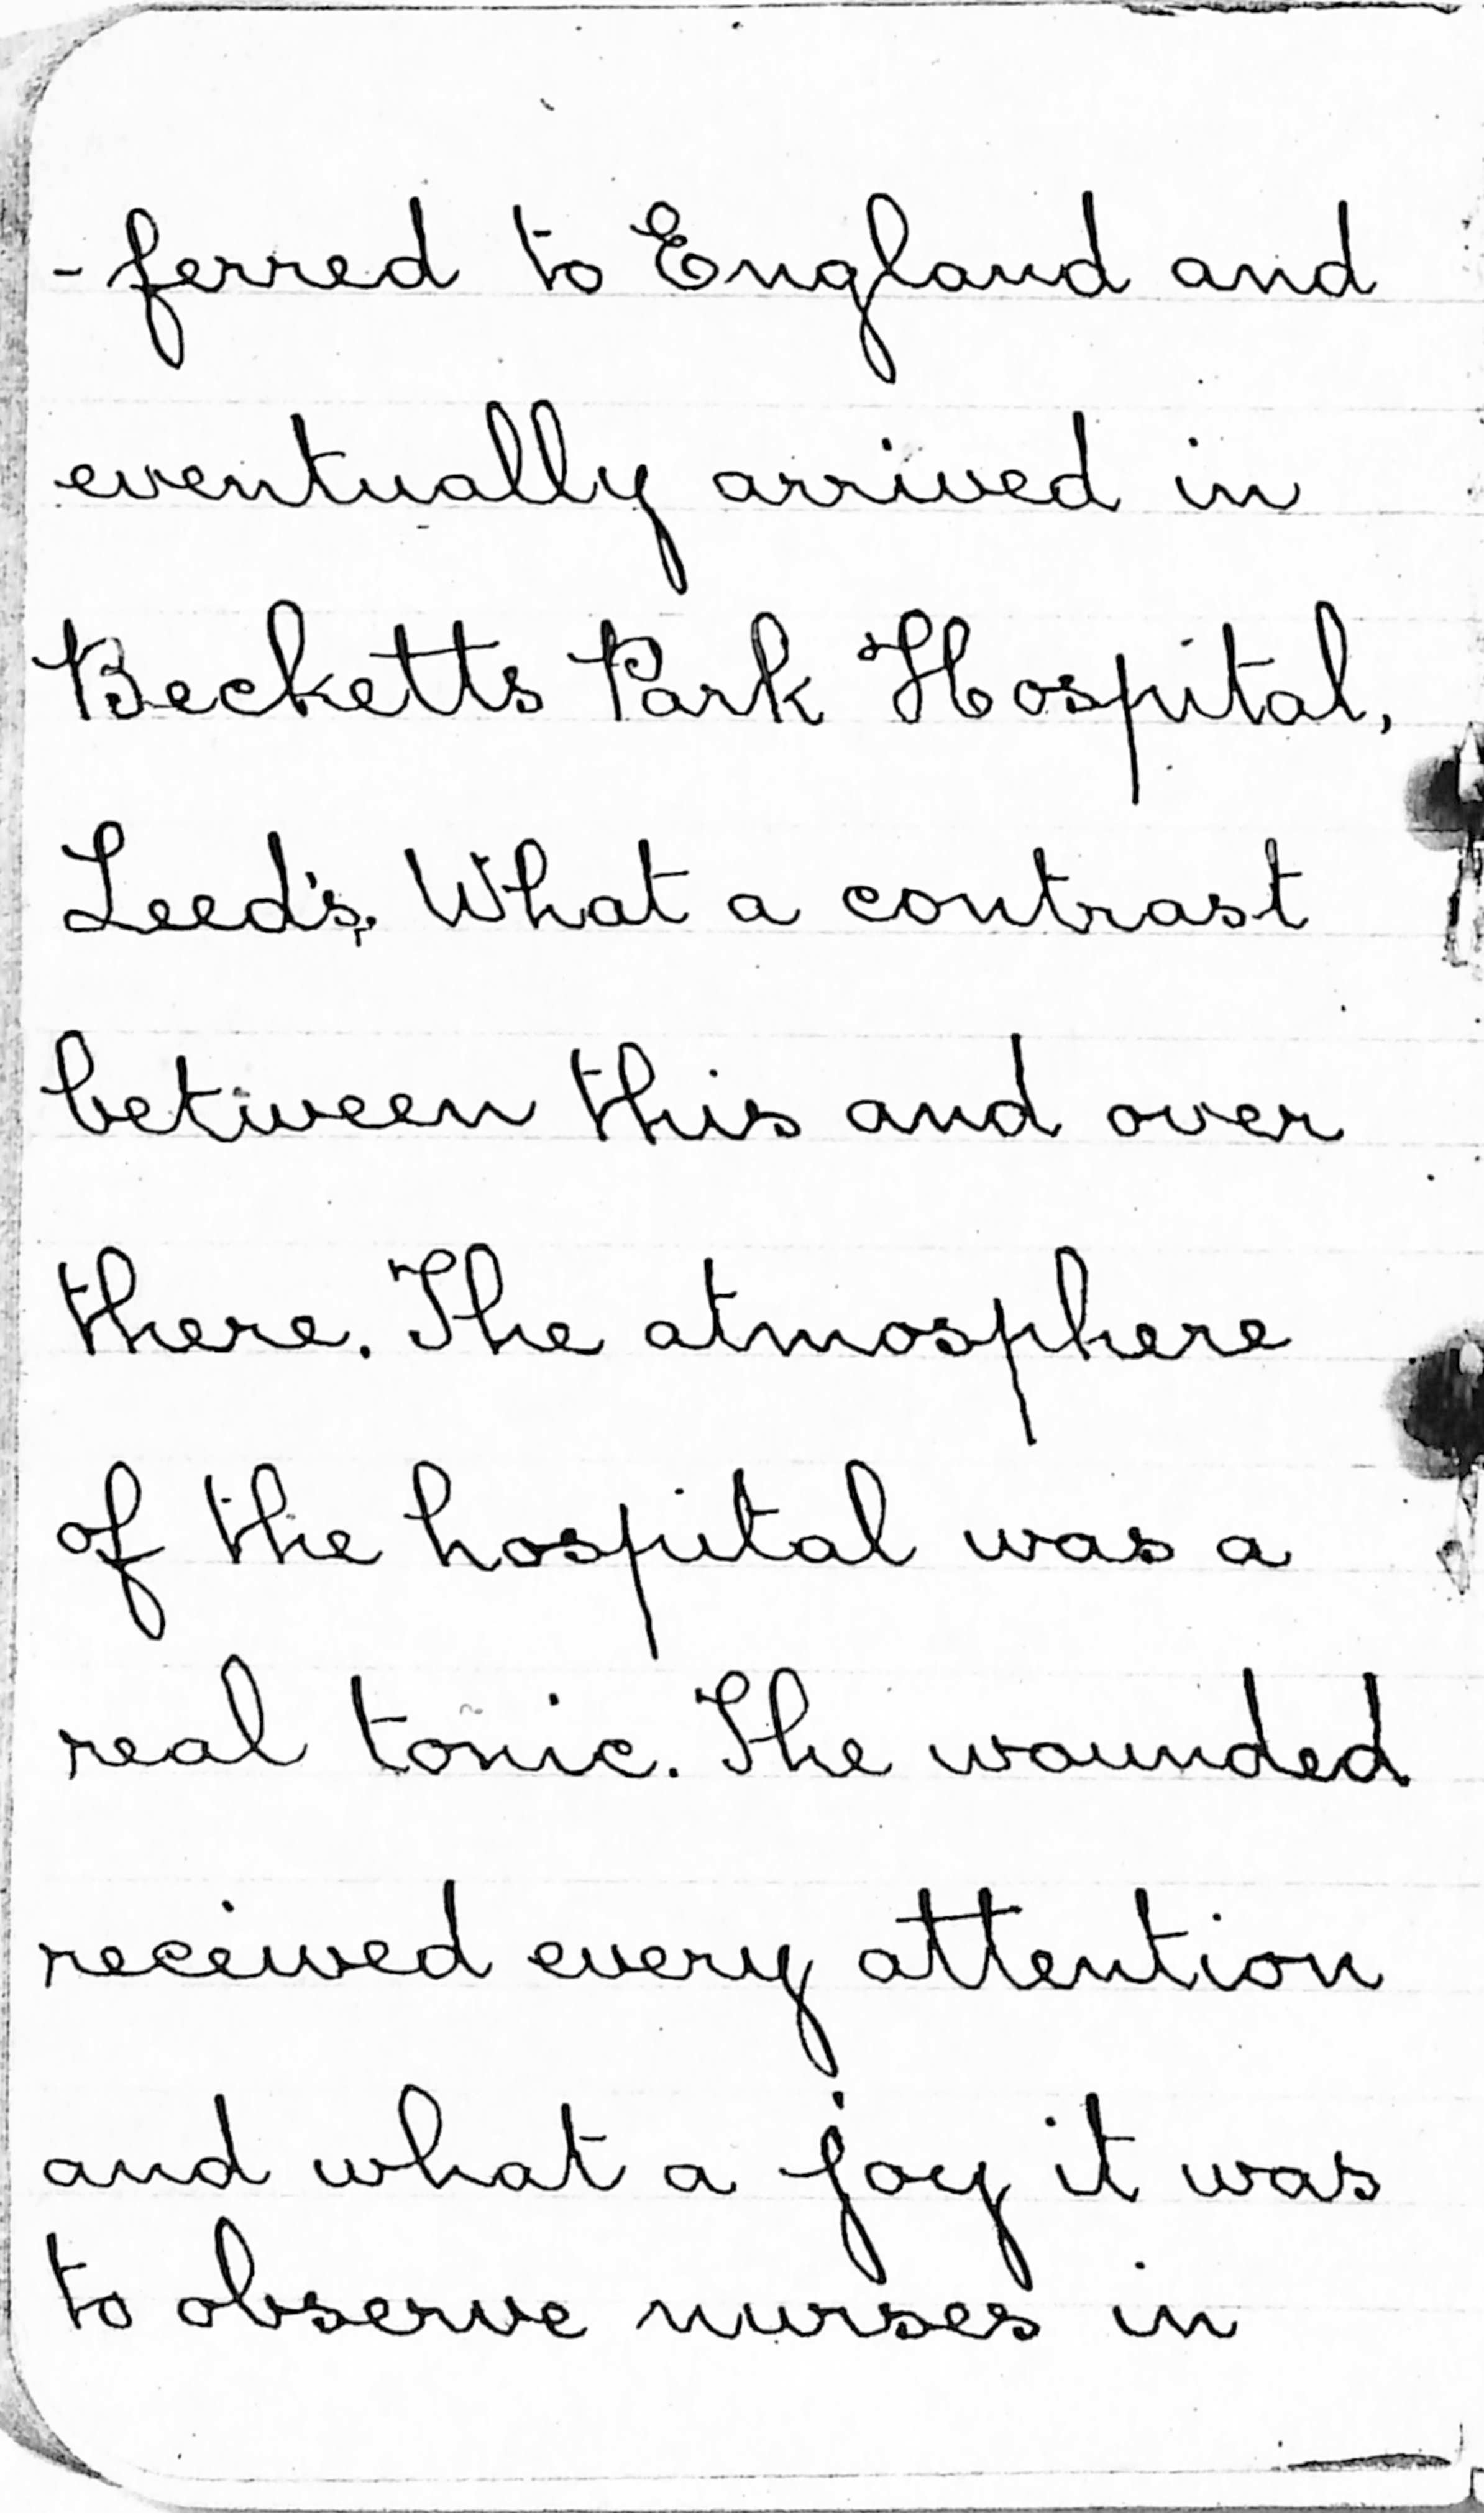 -ferred to England and
eventually arrived in
Becketts Park Hospital,
Leed's. What a contrast
between this and over
there. The atmosphere
of the hospital was a
real tonic. The wounded
received every attention
and what a joy it was
to observe nurses in